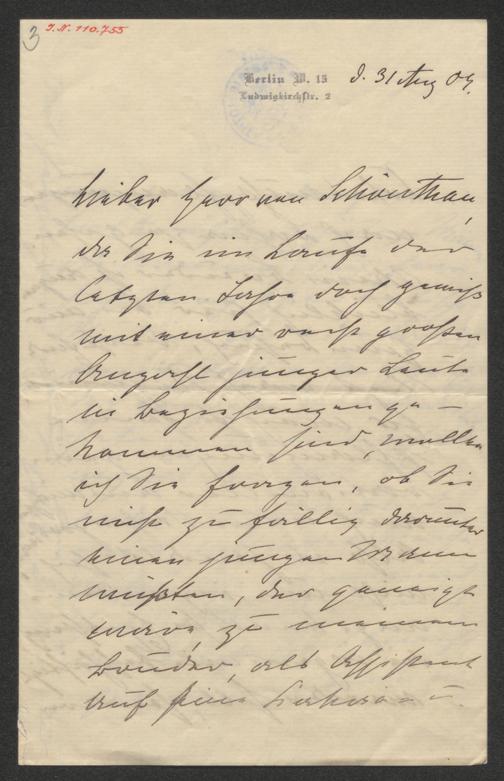 3
I.N. 110.755
Berlin W. 15
Ludwigkirchstr. 2
d. 31 Aug 04.
Lieber Herr von Schönthan,
da Sie im Laufe der
letzten Jahre doch gewiß
mit einer recht großen
Anzahl junger Leute
in Beziehungen ge-
kommen sind, wollte
ich Sie fragen, ob Sie
nicht zufällig darunter
einen jungen Mann
wüßten, der geneigt
wäre, zu meinem
Bruder, als Assistent
auf sein